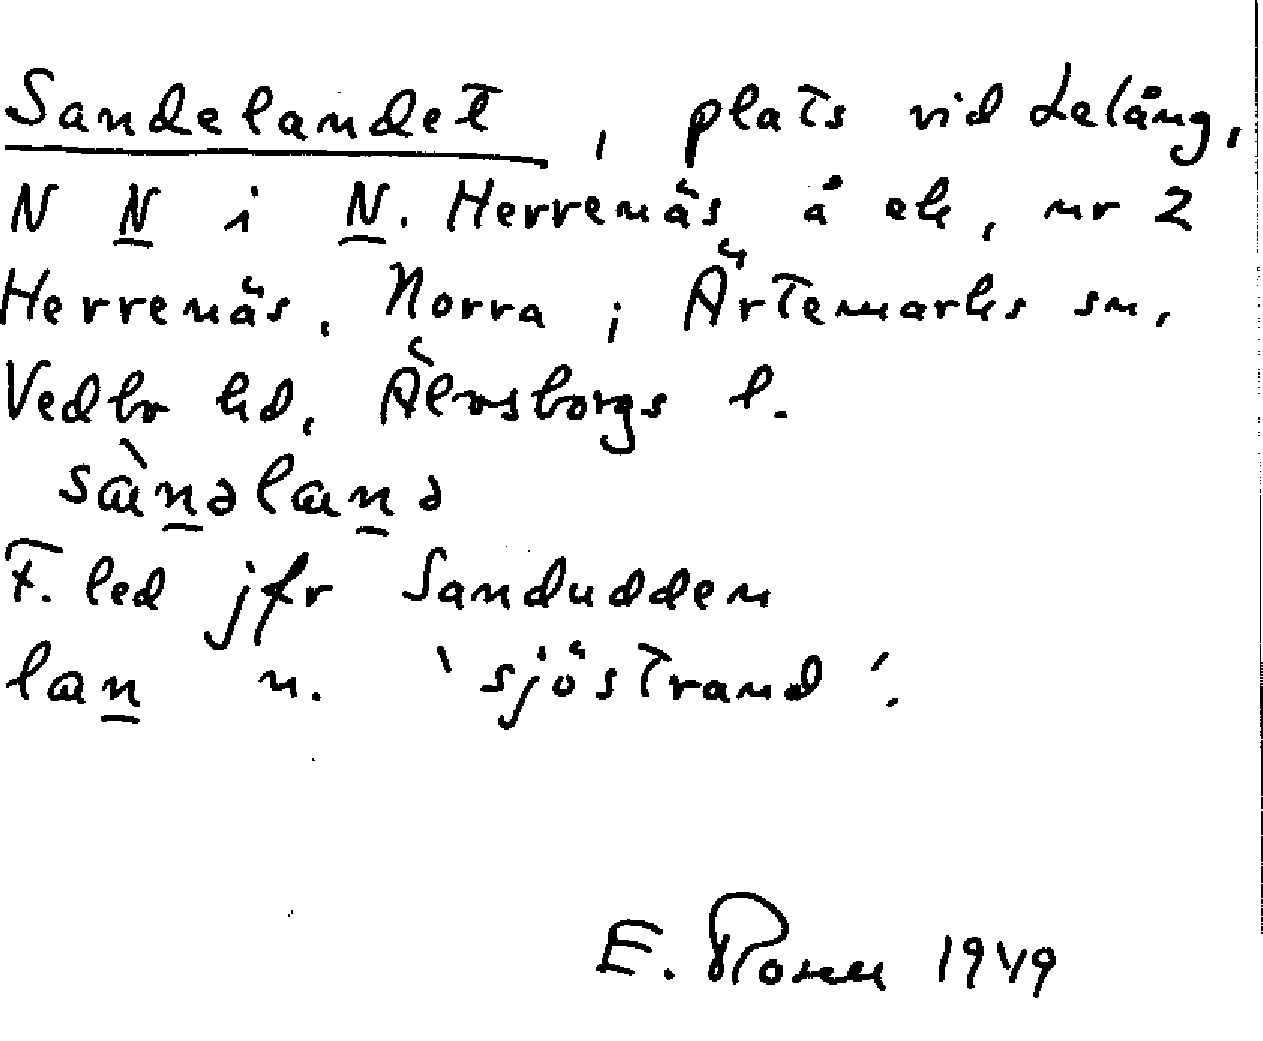 Sandelandet, plats vid Lelång,
N N i N. Herrenäs å ek, nr 2
Herrenäs, Norra i Ärtemarks sn,
Vedbo hd, Älvsborgs l.
sànəlanə
F. led jfr Sandudden
lan n. 'sjöstrand'.
E. Rosell 1949